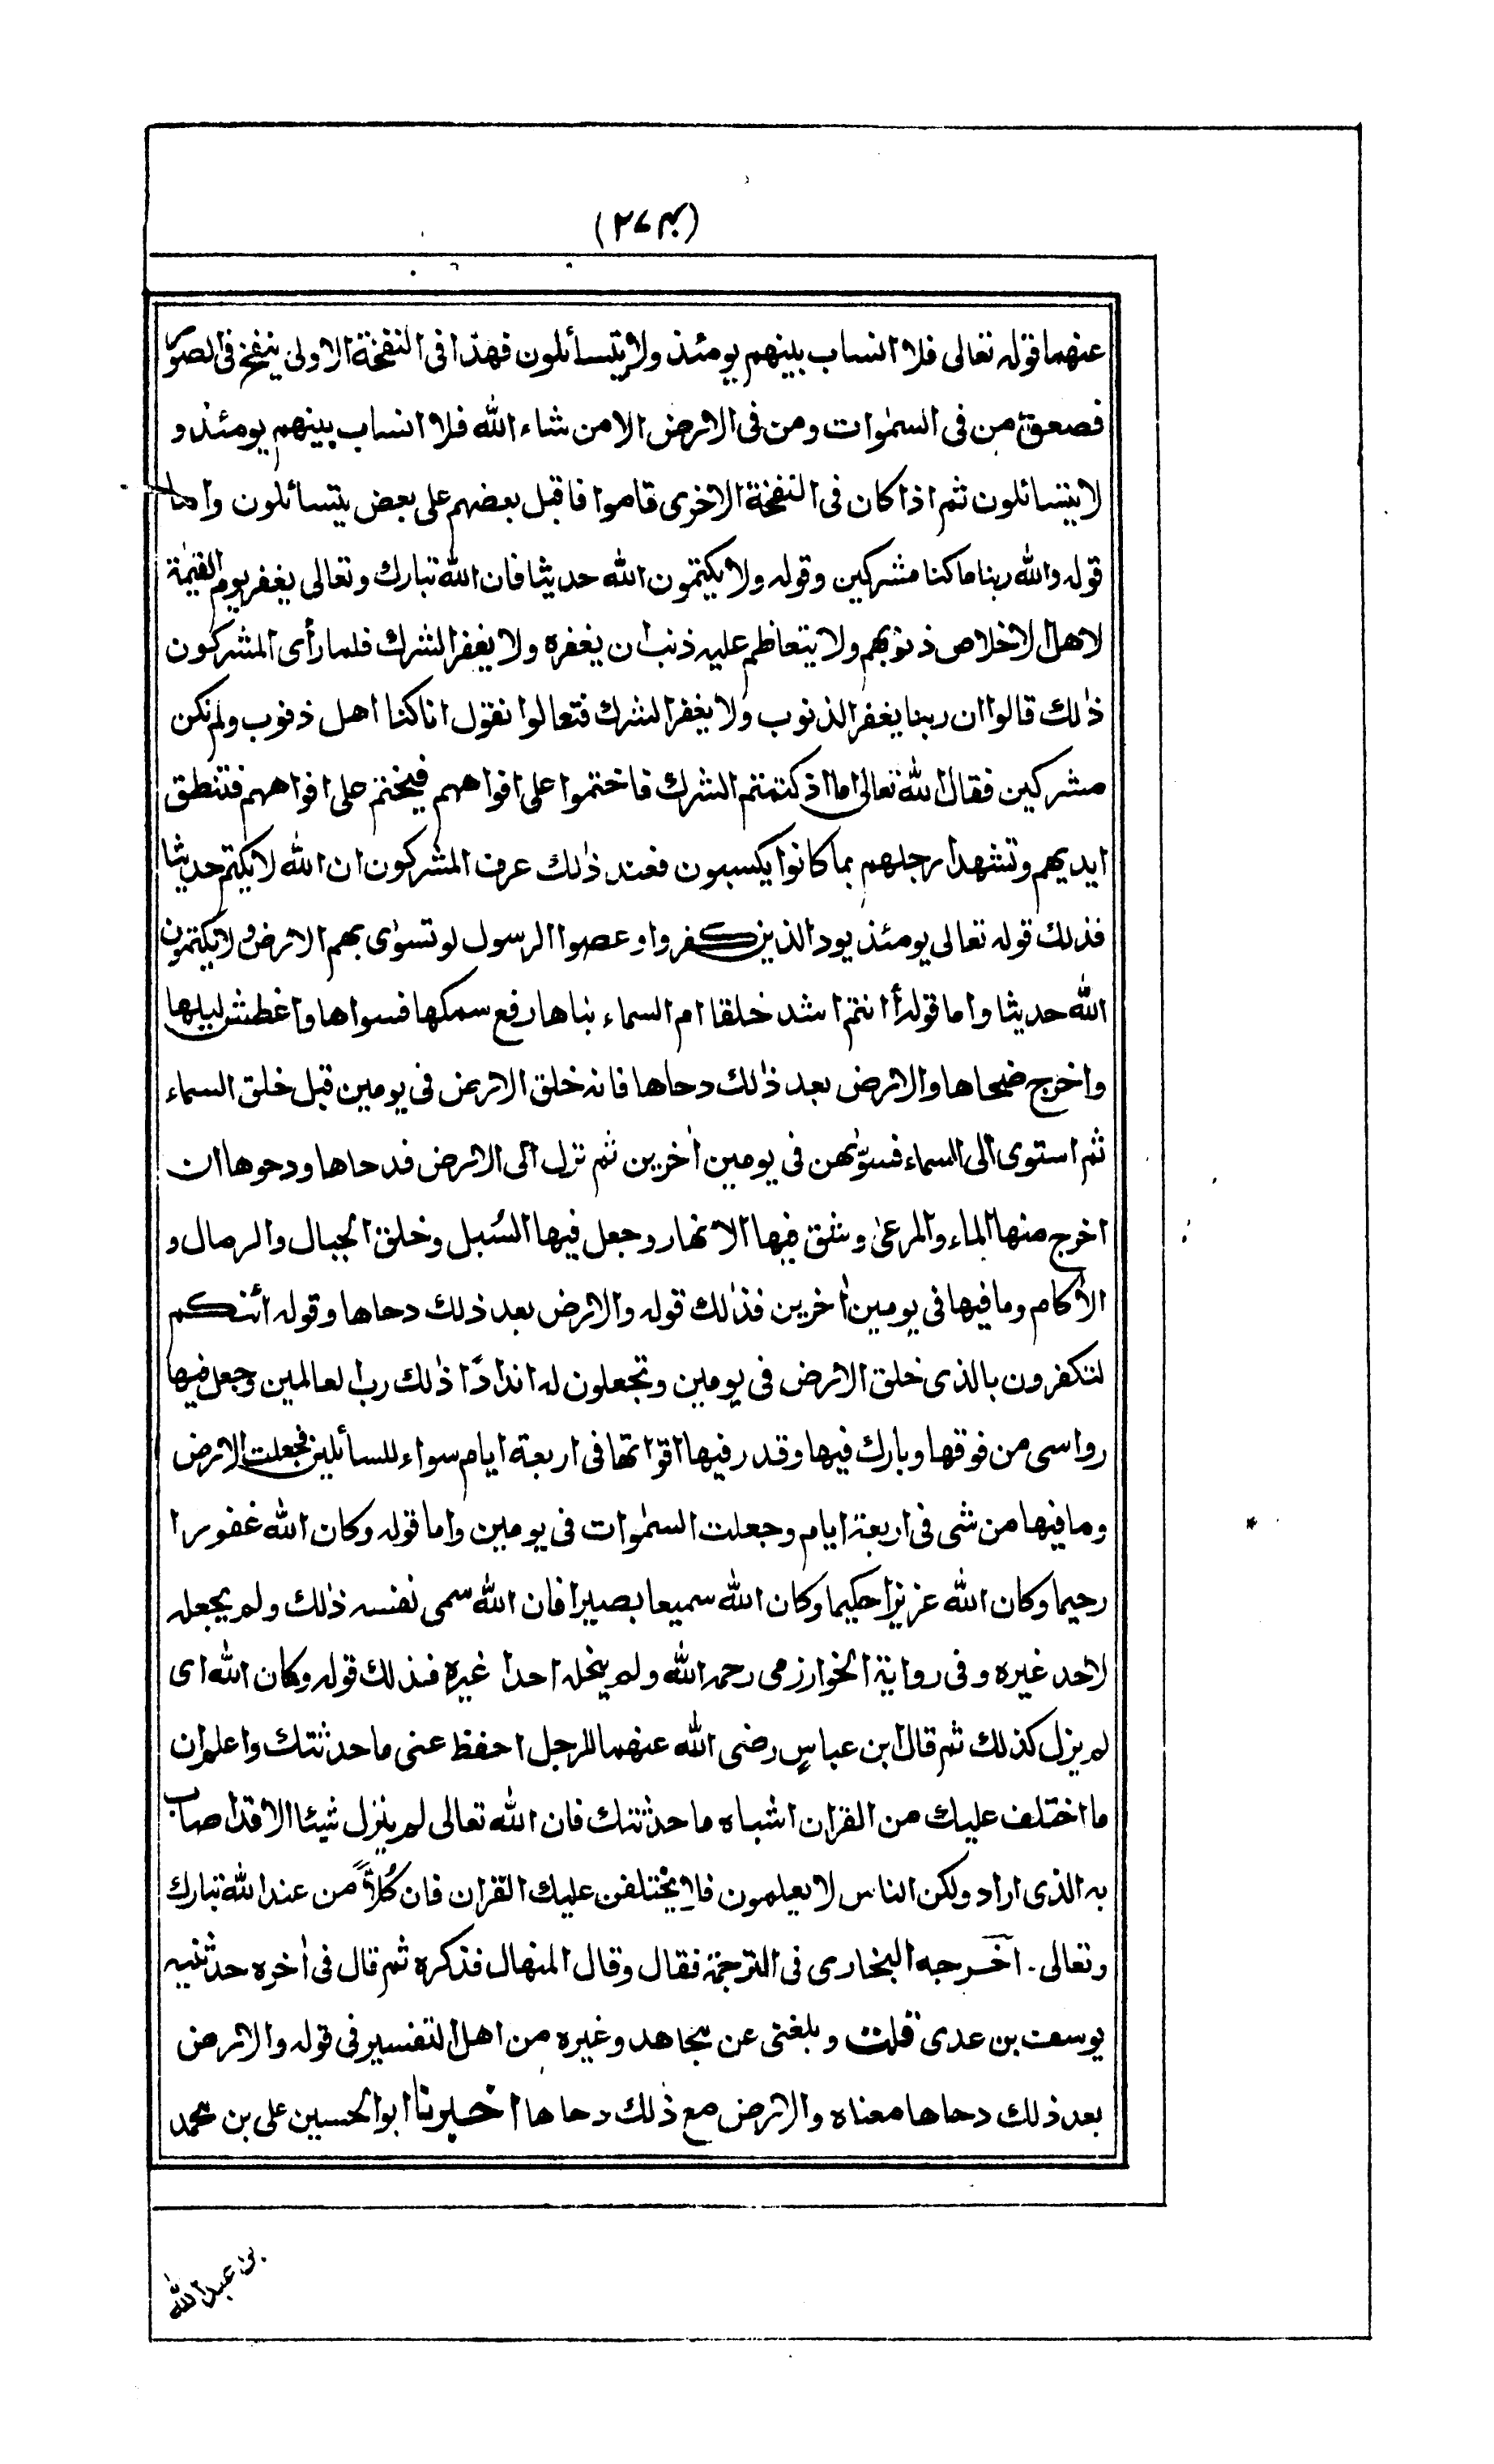 (٢٧٤)
عنهما قوله تعالى فلا انساب بينهم يومئذ ولا يتسائلون فهذا فى النفخة الاولى ينفخ فى الصور
فصعق من فى السمٰوات ومن فى الارض الا من شاء الله فلا انساب بينهم يومئذ و
لا يتسائلون ثم اذا كان فى النفخة الاخرى قاموا فاقبل بعضهم على بعض يتسائلون واما
قوله والله ربنا ما كنا مشركين وقوله ولا يكتمون الله حديثا فان الله تبارك وتعالى يغفر يوم القيٰمة
لاهل الاخلاص ذنوبهم ولا يتعاظم عليه ذنب ان يغفره ولا يغفر الشرك فلما رأى المشركون
ذٰلك قالوا ان ربنا يغفر الذنوب ولا يغفر الشرك فتعالوا نقول انا كنا اهل ذنوب ولم نكن
مشركين فقال الله تعالى اما اذ كتمتم الشرك فاختموا على افواههم فيختم على افواههم فتنطق
ايديهم وتشهد ارجلهم بما كانوا يكسبون فعند ذٰلك عرف المشركون ان الله لا يكتم حديثا
فذلك قوله تعالى يومئذ يود الذين كفروا وعصوا الرسول لو تسوٰى بهم الارض ولا يكتمون
الله حديثا واما قوله أانتم اشد خلقا ام السماء بناها رفع سمكها فسواها واغطش ليلها
واخرج ضحاها والارض بعد ذٰلك دحاها فانه خلق الارض فى يومين قبل خلق السماء
ثم استوى الى السماء فسوّٰهن فى يومين اٰخرين ثم نزل الى الارض فدحاها ودحوها ان
اخرج منها الماء والمرعىٰ وشق فيها الانهار وجعل فيها السُبل وخلق الجبال والرمال و
الأكام وما فيها فى يومين اٰخرين فذٰلك قوله والارض بعد ذلك دحاها وقوله ائنكم
لتكفرون بالذى خلق الارض فى يومين وتجعلون له اندادًا ذٰلك رب العالمين وجعل فيها
رواسى من فوقها وبارك فيها وقدر فيها اقواتها فى اربعة ايام سواء للسائلين فجعلت الارض
وما فيها من شى فى اربعة ايام وجعلت السمٰوات فى يومين واما قوله وكان الله غفورا
رحيما وكان الله عزيزا حكيما وكان الله سميعا بصيرا فان الله سمى نفسه ذٰلك ولم يجعله
لاحد غيره وفى رواية الخوارزمى رحمه الله ولم ينحله احدا غيره فذلك قوله وكان الله اى
لم يزل كذلك ثم قال ابن عباسٍ رضى الله عنهما للرجل احفظ عنى ما حدثتك واعلم ان
ما اختلف عليك من القران اشباه ما حدثتك فان الله تعالى لم ينزل شيئا الا قد اصاب
به الذى اراد ولكن الناس لا يعلمون فلا يختلفن عليك القران فان كُلاً من عند الله تبارك
وتعالى. اخرجه البخارى فى الترجمة فقال وقال المنهال فذكره ثم قال فى اٰخره حدثنيه
يوسف بن عدى قلت وبلغنى عن مجاهد وغيره من اهل التفسير فى قوله والارض
بعد ذلك دحاها معناه والارض مع ذٰلك دحاها اخبرنا ابو الحسين على بن محمد
بن عبد الله